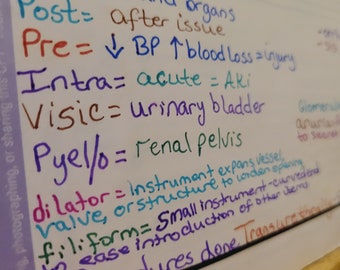 and organs
Post= after issue
Pre= ↓ BP ↑ blood loss = injury
Intra= acute = AKi
Visic= urinary bladder
Pyel/o= renal pelvis
dilator= instrument expans vessel,
valve, or structure to widen opening
filiform= Small instrument-curved end
ease introduction of other
done.
photographing, or sharing